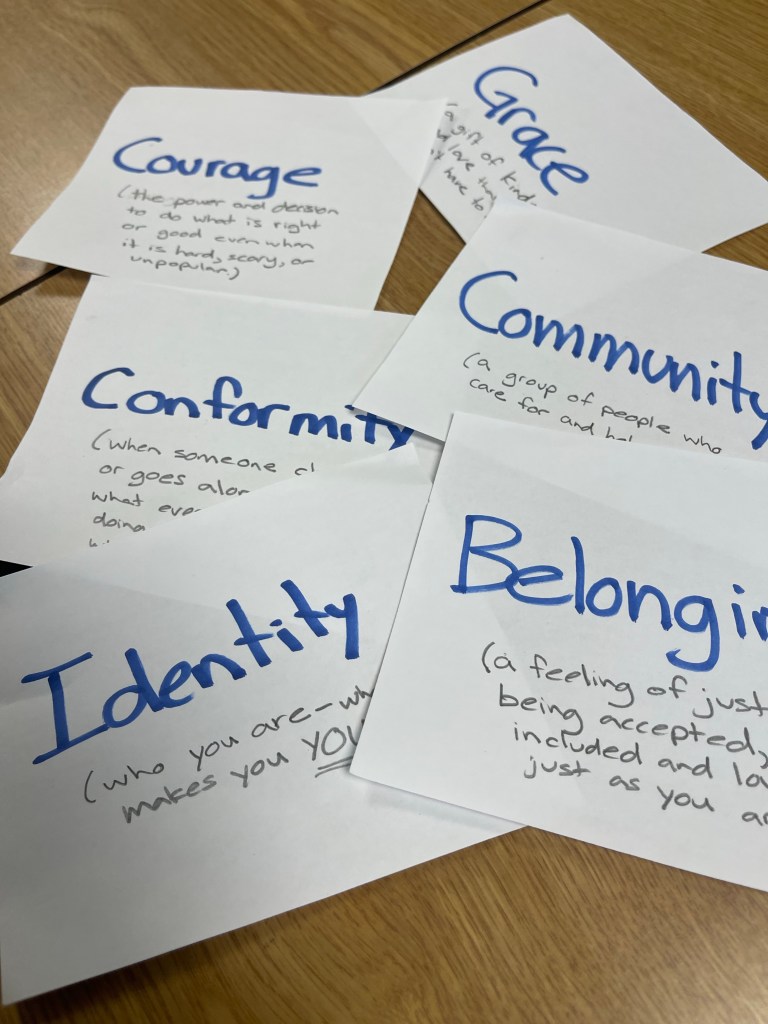 Courage
(the power and decision
to do what is right
or good even when
it is hard, scary, or
unpopular.)
Grace
(a gift of kind
love
have to
Community
(a group of people who
care for and
Conformity
(when someone
or goes
what
doing
Identity
(who you are-
makes you YOU
Belongin
(a feeling of just
being accepted,
included and
just as you